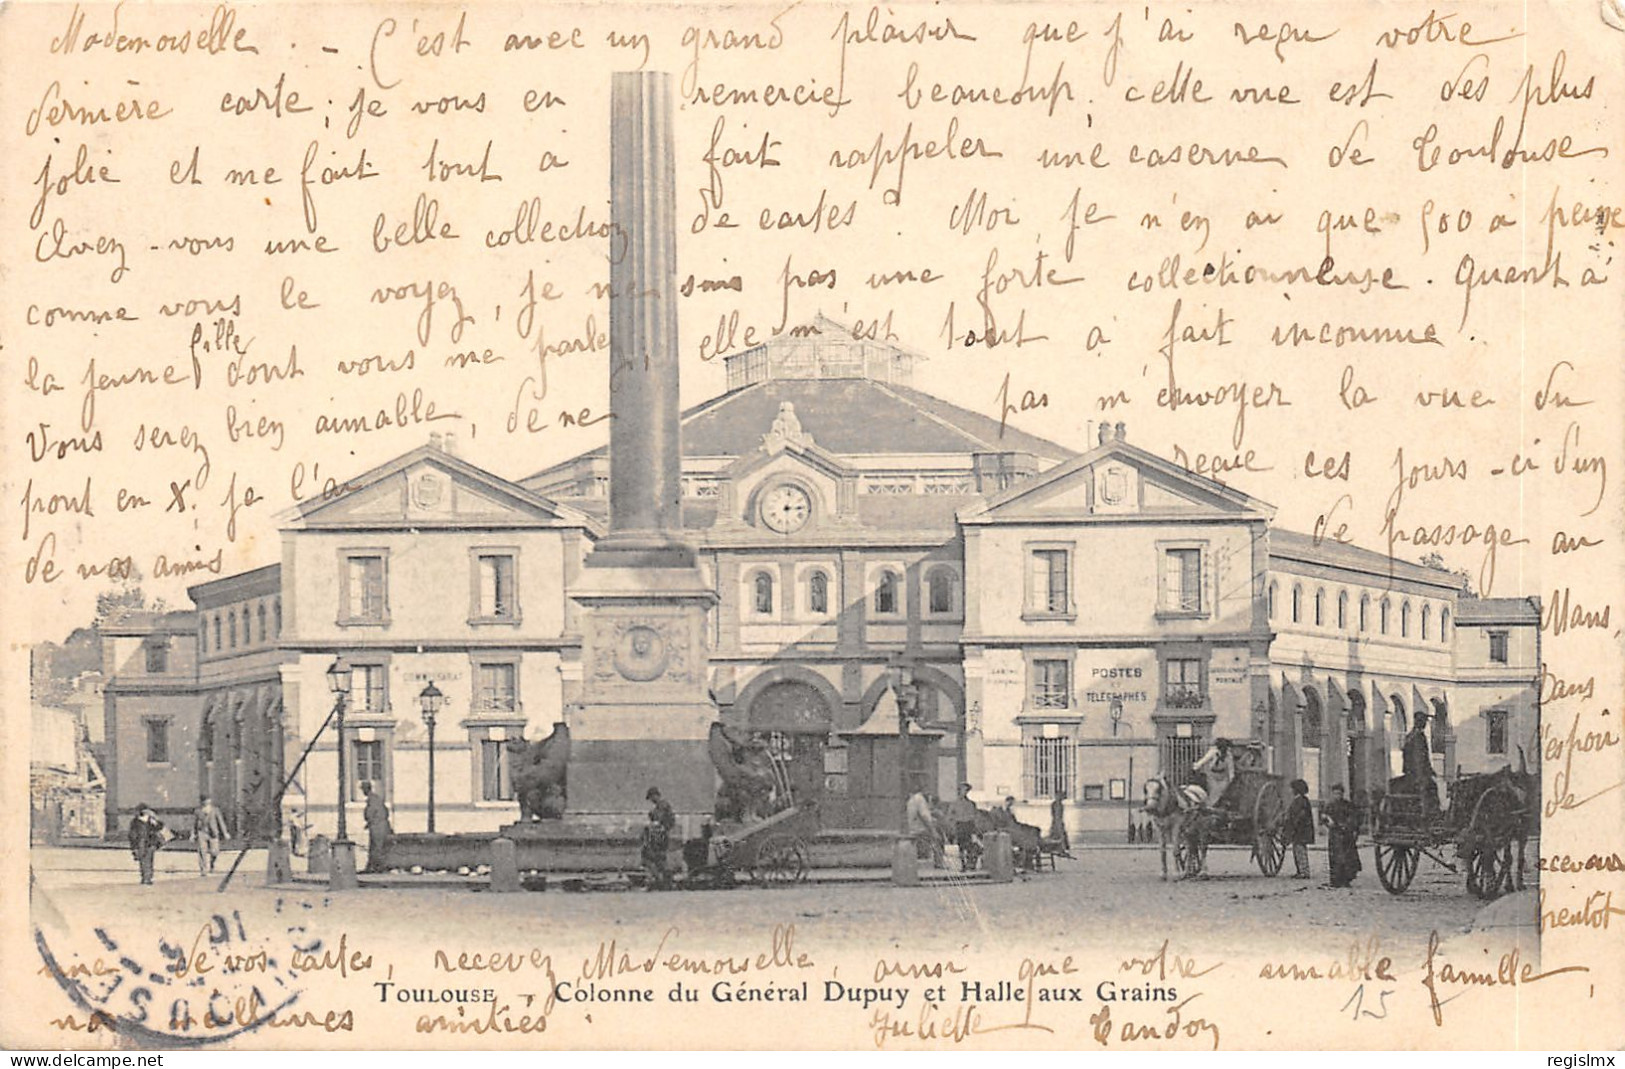 Mademoiselle. - C'est avec un grand plaisir que j'ai reçu votre
dernière carte; je vous en remercie beaucoup. Cette vue est des plus
jolie et me fait tout à fait rappeler une caserne de Toulouse
Avez-vous une belle collection de cartes? Moi, je n'en ai que 500 à peine
comme vous le voyez, je ne suis pas une forte collectionneuse. Quant à
la jeune fille dont vous me parlez, elle m'est tout à fait inconnue.
Vous serez bien aimable, de ne pas m'envoyer la vue du
pont en X. je l'ai reçue ces jours-ci d'un
de vos amis de passage au
Mans.
Dans
l'espoir
de
recevoir
bientôt
une de vos cartes, recevez Mademoiselle, ainsi que votre aimable famille,
nos meilleures amitiés.
Juliette Tandon.
15
COMMISSARIAT
POLICE
POSTES
ET
TÉLÉGRAPHES
POSTALE
TOULOUSE - Colonne du Général Dupuy et Halle aux Grains
TOULOUSE
delcampe.net
regislmx